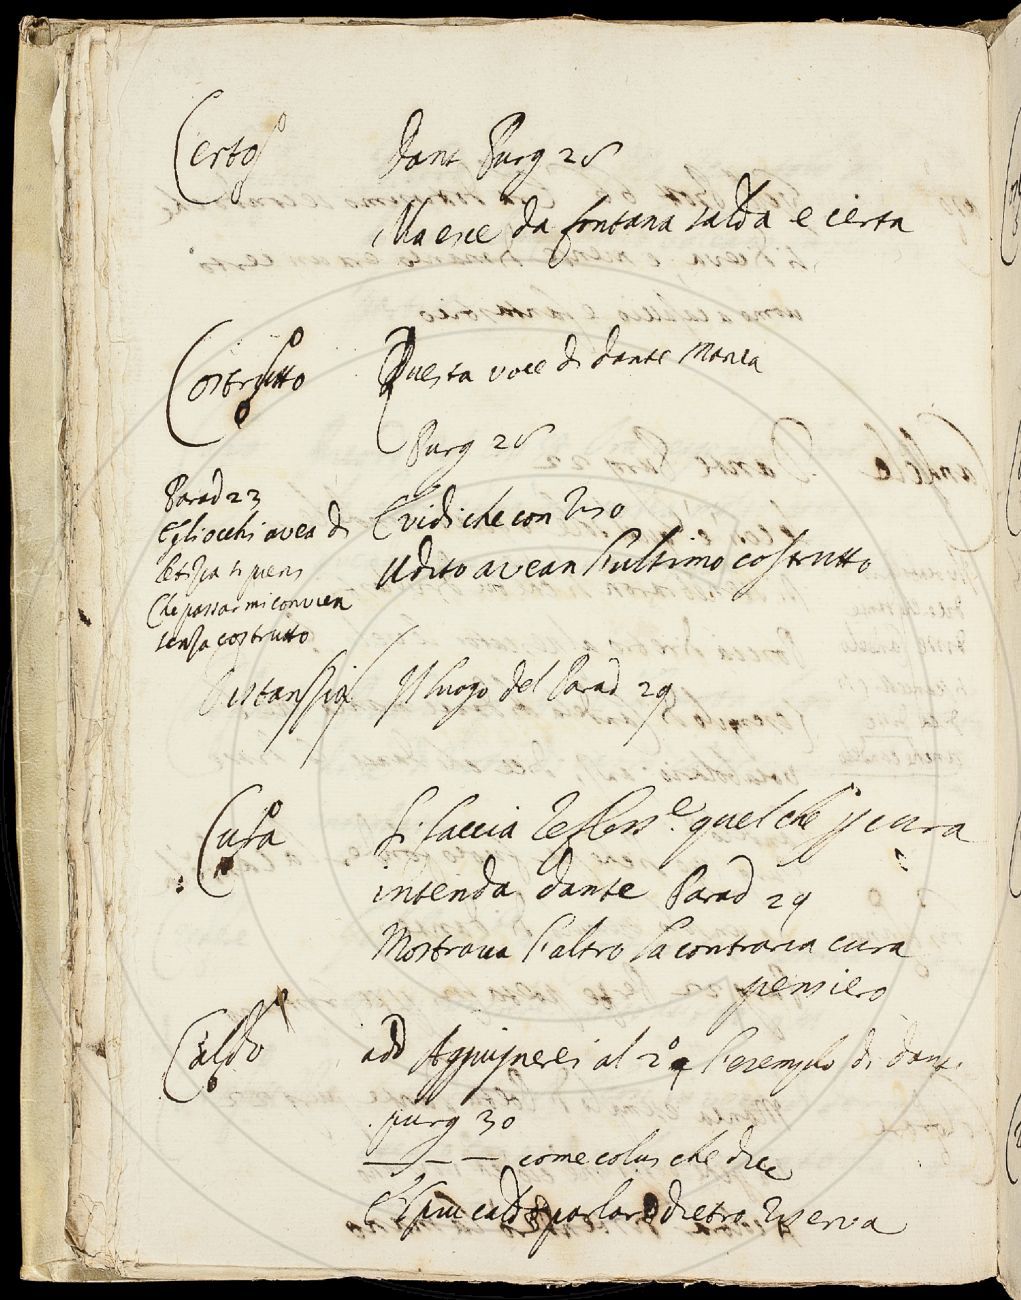 Certo
Dant Purg 28
Ma esce da fontana salda e certa
Costrutto
Questa voce di dante manca
Purg 28
E vidi che con riso
Udito avean l'ultimo costrutto
Parad 23
E gli occhi avea di
letizia si pieni
Che passar mi convien
senza costrutto
Distanzia
Il luogo del Parad 29
Cura
si faccia quel che p cura
intenda dante Parad 29
Mostrava l'altro la contraria cura
pensiero
Caldo
add Aggiugnerei al 2º l'esempio di dant.
purg 30
— — — come colui che dice
E'l piu caldo parlar dietro riserva